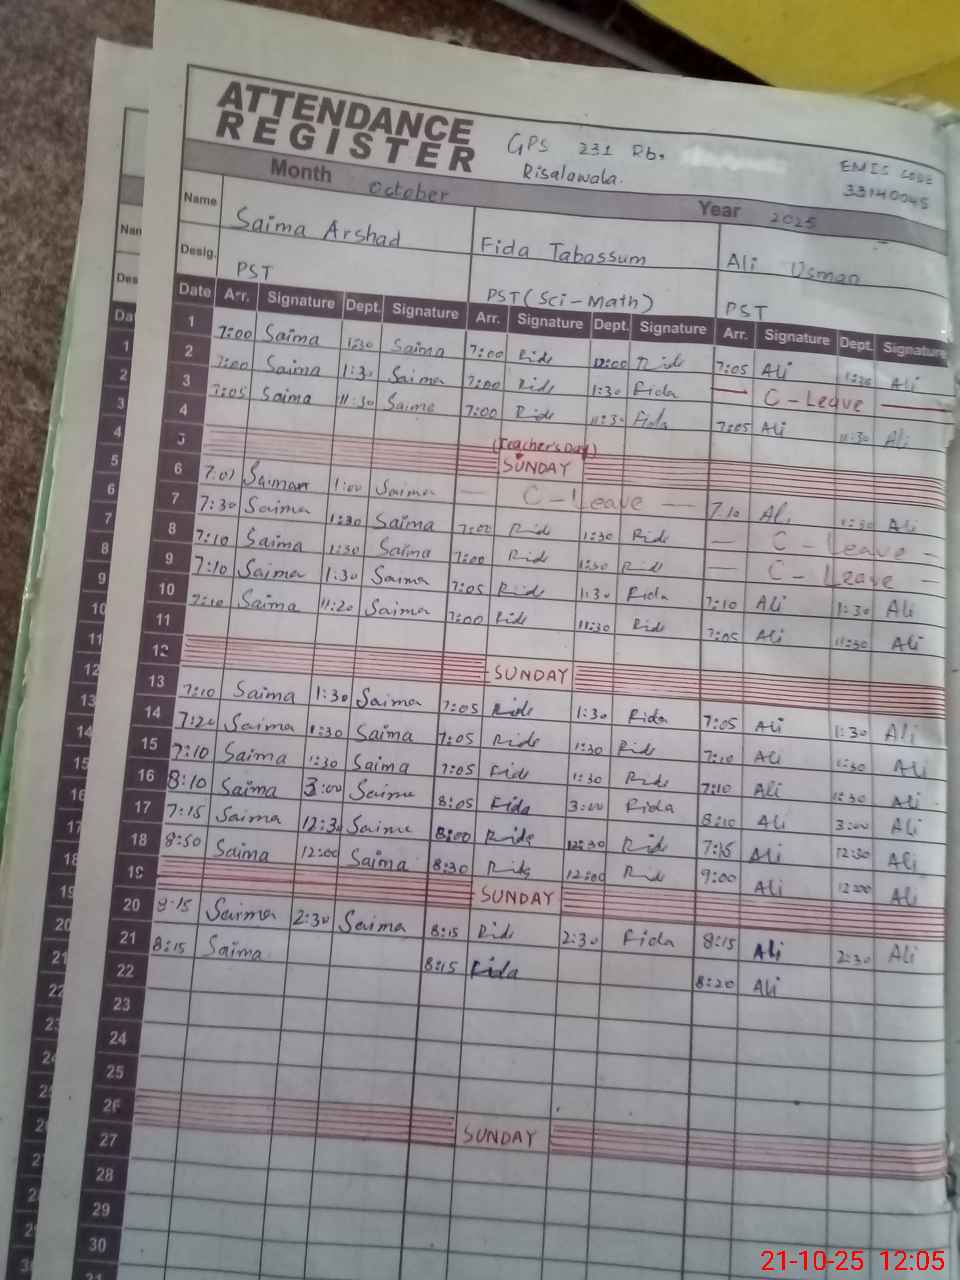 ATTENDANCE
REGISTER
GPS 231 Rb,
Risalawala.
EMIS CODE
33140045
Month October Year 2025
Name Saima Arshad Fida Tabassum Ali Usman
Desig. PST PST (Sci-Math) PST
Date Arr. Signature Dept. Signature Arr. Signature Dept. Signature Arr. Signature Dept. Signature
1 7:00 Saima 1:30 Saima 7:00 Fida 12:00 Fida 7:05 Ali 1:30 Ali
2 7:00 Saima 1:30 Saima 7:00 Fida 1:30 Fida C-Leave
3 7:05 Saima 11:30 Saima 7:00 Fida 11:30 Fida 7:05 Ali 11:30 Ali
4
5 (Teacher's Day) SUNDAY
6 7:01 Saima 1:00 Saima C-Leave 7:10 Ali 1:30 Ali
7 7:30 Saima 1:30 Saima 7:00 Fida 1:30 Fida C-Leave
8 7:10 Saima 1:30 Saima 7:00 Fida 1:30 Fida C-Leave
9 7:10 Saima 1:30 Saima 7:05 Fida 1:30 Fida 7:10 Ali 1:30 Ali
10 7:10 Saima 11:20 Saima 7:00 Fida 11:30 Fida 7:05 Ali 11:30 Ali
11
12 SUNDAY
13 7:10 Saima 1:30 Saima 7:05 Fida 1:30 Fida 7:05 Ali 1:30 Ali
14 7:20 Saima 1:30 Saima 7:05 Fida 1:30 Fida 7:10 Ali 1:30 Ali
15 7:10 Saima 1:30 Saima 7:05 Fida 1:30 Fida 7:10 Ali 1:30 Ali
16 8:10 Saima 3:00 Saima 8:05 Fida 3:00 Fida 8:10 Ali 3:00 Ali
17 7:15 Saima 12:30 Saima 8:00 Fida 12:30 Fida 7:15 Ali 12:30 Ali
18 8:50 Saima 12:00 Saima 8:30 Fida 12:00 Fida 9:00 Ali 12:00 Ali
19 SUNDAY
20 8:15 Saima 2:30 Saima 8:15 Fida 2:30 Fida 8:15 Ali 2:30 Ali
21 8:15 Saima 8:15 Fida 8:20 Ali
22
23
24
25
26 SUNDAY
27
28
29
30
31
21-10-25 12:05